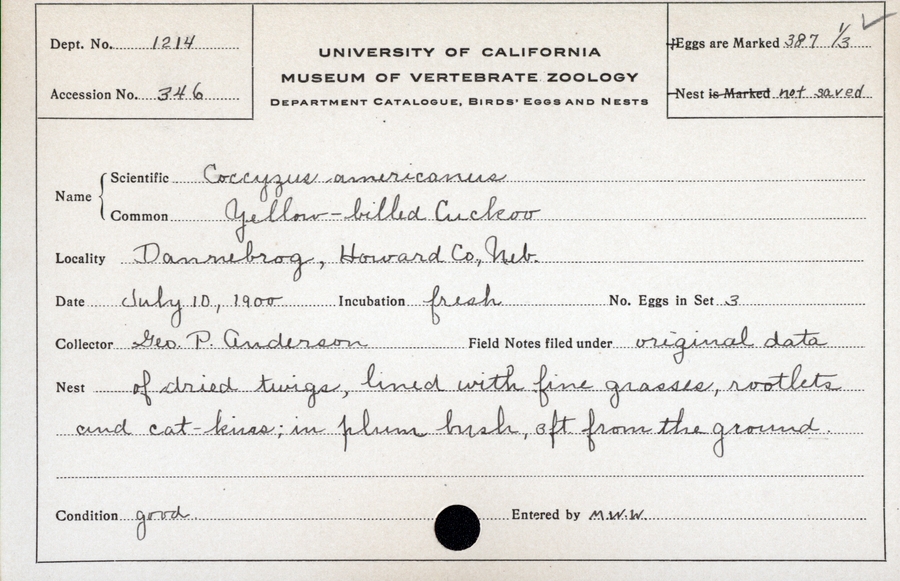 Dept. No. 1214
Accession No. 346
UNIVERSITY OF CALIFORNIA
MUSEUM OF VERTEBRATE ZOOLOGY
DEPARTMENT CATALOGUE, BIRDS' EGGS AND NESTS
Eggs are Marked 387 1/3
Nest is Marked not saved
Name
Scientific Coccyzus americanus
Common Yellow-billed Cuckoo
Locality Dannebrog, Howard Co, Neb.
Date July 10, 1900 Incubation fresh No. Eggs in Set 3
Collector Geo. P. Anderson Field Notes filed under original data
Nest of dried twigs, lined with fine grasses, rootlets
and cat-kins; in plum bush, 3ft from the ground.
Condition good. Entered by M.W.W.